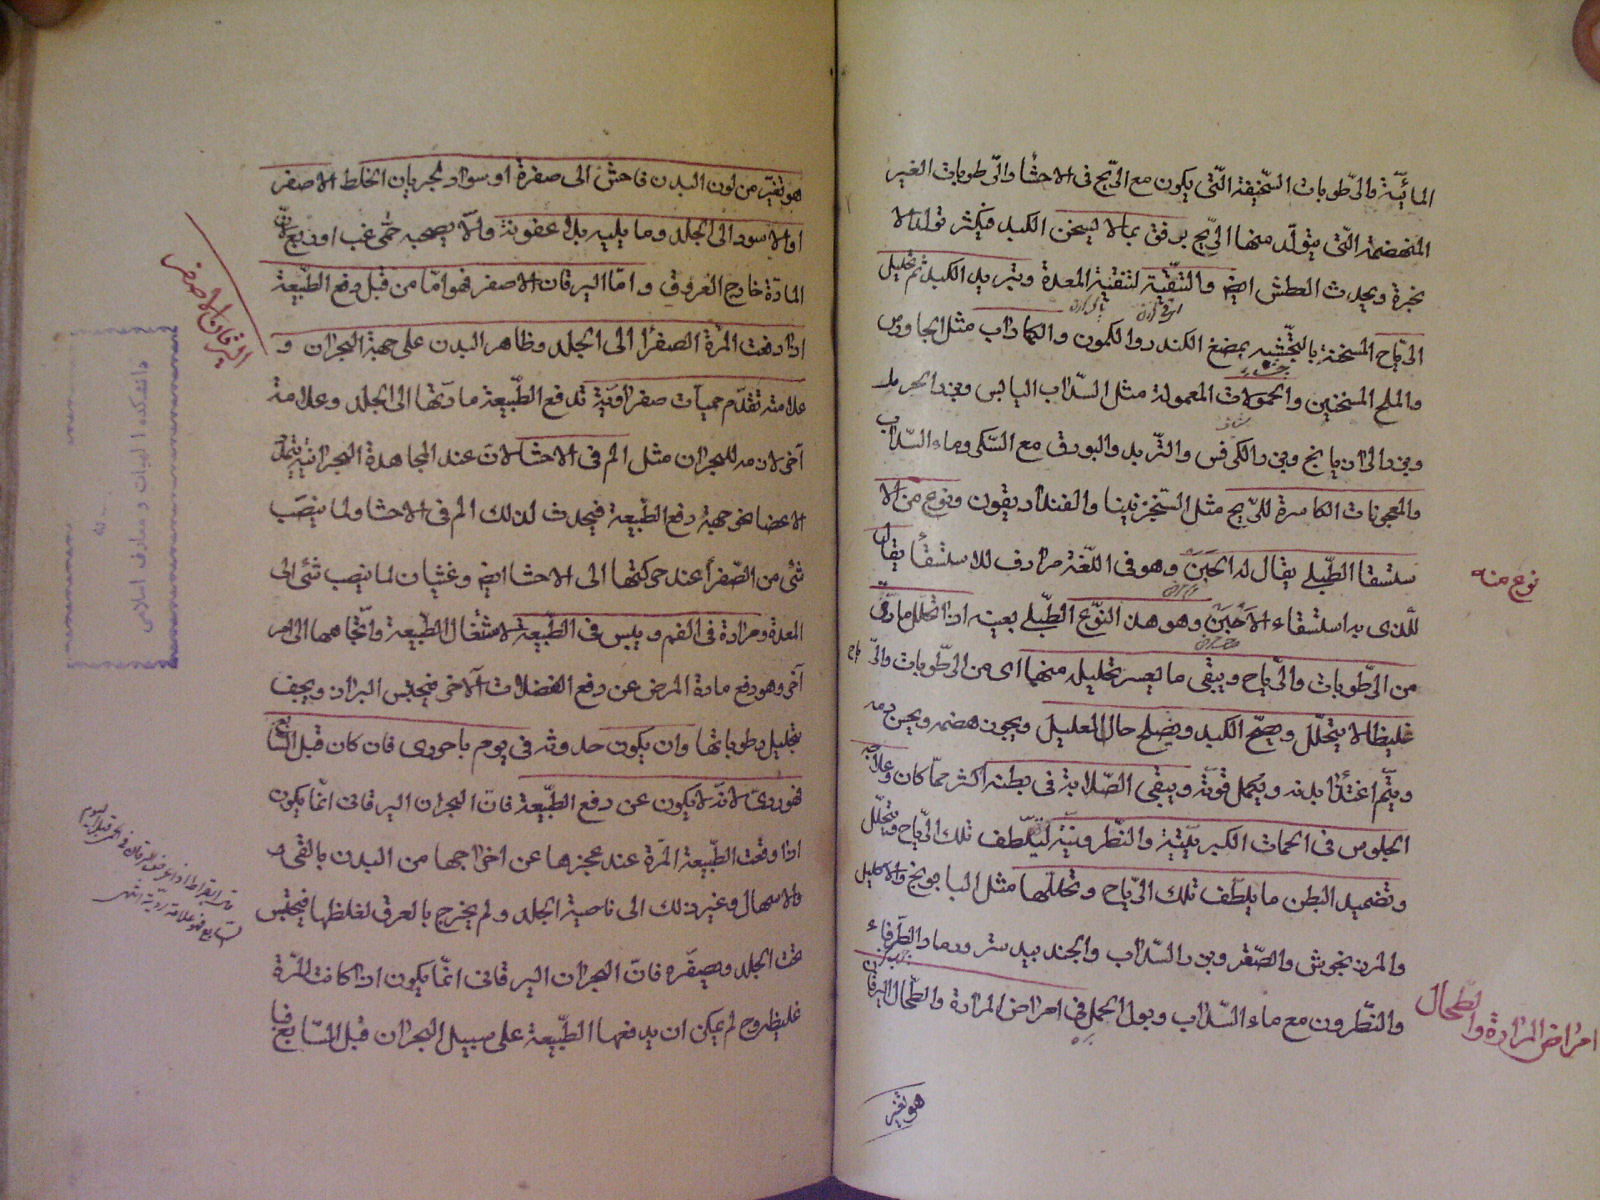 المائيّة والرّطوبات السّخيفة الّتى يكون مع الرّيح فى الاحشا والرّطوبات الغير
المنهضمة الّتى يتولّد منها الرّيح برفق بما لا يسخن الكبد فيكثر تولد الا
بخرة ويحدث العطش ايضا والتّنقية لتنقية المعدة وتبريد الكبد ثم تحليل
الرّياح المسخنة بالتجشيه بمضغ الكندر والكمون والكمادات مثل الجاورس
والملح المسخنين والحمولات المعمولة مثل السّداب اليابس وبزر الحرمل
وبزر الرازيانج وبزر الكرفس والتّربد والبورق مع السّكر وماء السّداب
والمعجونات الكاسرة للرّيح مثل السّنجرنينا والفنداديقون ونوع من الا
ستسقا الطّبلى يقال له الحَبَن وهو فى اللّغة مرادف للاستسقا يقال
للّذى به استسقاء الاحبن وهو هذا النّوع الطّبلى بعينه اذا تحلل مادّته
من الرّطوبات والرّياح ويبقى ما يعسر تحليله منهما اى من الرّطوبات والرّياح
غليظا لا يتحلّل ويصحّ الكبد ويصلح حال العليل ويجود هضمه ويحسن دمه
ويتمّ اغتذا بدنه ويكمل قوته ويبقى الصّلابة فى بطنه اكثر ممّا كان وعلاجه
الجلوس فى الحمات الكبريتيّة والنّطرونيّة ليتلطّف تلك الرّياح ويتحلّل
وتضميد البطن ما يلطّف تلك الرّياح وتحللها مثل البابونج والاكليل
والمرزنجوش والصّعتر وبزر السّداب والجندبيدستر ورماد الطّرفاء
والنّطرون مع ماء السّداب وبول الجمل فى امراض المرارة والطّحال اليرقان
نوع منه
امراض المرارة والطّحال
هو تغيّر
هو تغيّر من لون البدن فاحش الى صفرة او سواد لجريان الخلط الاصفر
او الاسود الى الجلد وما يليه بلا عفونة والّا يصحبه حمّى غب او ربع لانّ
المادّة خارج العروق وامّا اليرقان الاصفر فهو امّا من قبل دفع الطّبيعة
اذا دفعت المرّة الصفرا الى الجلد وظاهر البدن على جهة البحران و
علامته تقدّم حميات صفراويّة تدفع الطّبيعة مادّتها الى الجلد وعلامة
اخرى لازمه للبحران مثل الم فى الاحشا لانّ عند المجاهدة البحرانيّة
الاعضا نحو جهة دفع الطّبيعة فيحدث لذلك الم فى الاحشا ولما ينصب
شئ من الصّفرا عند حركتها الى الاحشا ايضا وغثيان لما ينصب شئ الى
المعدة ومرارة فى الفم ويبس فى الطّبيعة لاشتغال الطّبيعة واتّجاهها الى امر
آخر وهو دفع مادة المرض عن دفع الفضلات الآخر فيحتبس البراز ويجف
بتحليل رطوباتها وان يكون حدوثه فى يوم باحورى فان كان قبل السّابع
فهو ردىّ لانّه لا يكون عن دفع الطّبيعة فانّ البحران اليرقانى انّما يكون
اذا دفعت الطّبيعة المرّة عند عجزها عن اخراجها من البدن بالقئ و
والاسهال وغير ذلك الى ناحية الجلد ولم يخرج بالعرق لغلظها فيحتبس
تحت الجلد ويصفّره فانّ البحران اليرقانى انّما يكون اذا كانت المرّة
غليظة ولم يمكن ان يدفعها الطّبيعة على سبيل البحران قبل السّابع
اليرقان الاصفر
قال بقراط اذا عرض اليرقان فى الحمى قبل اليوم
السّابع فهو علامة رديّة انتهى
دانشکده الهیات و معارف اسلامی